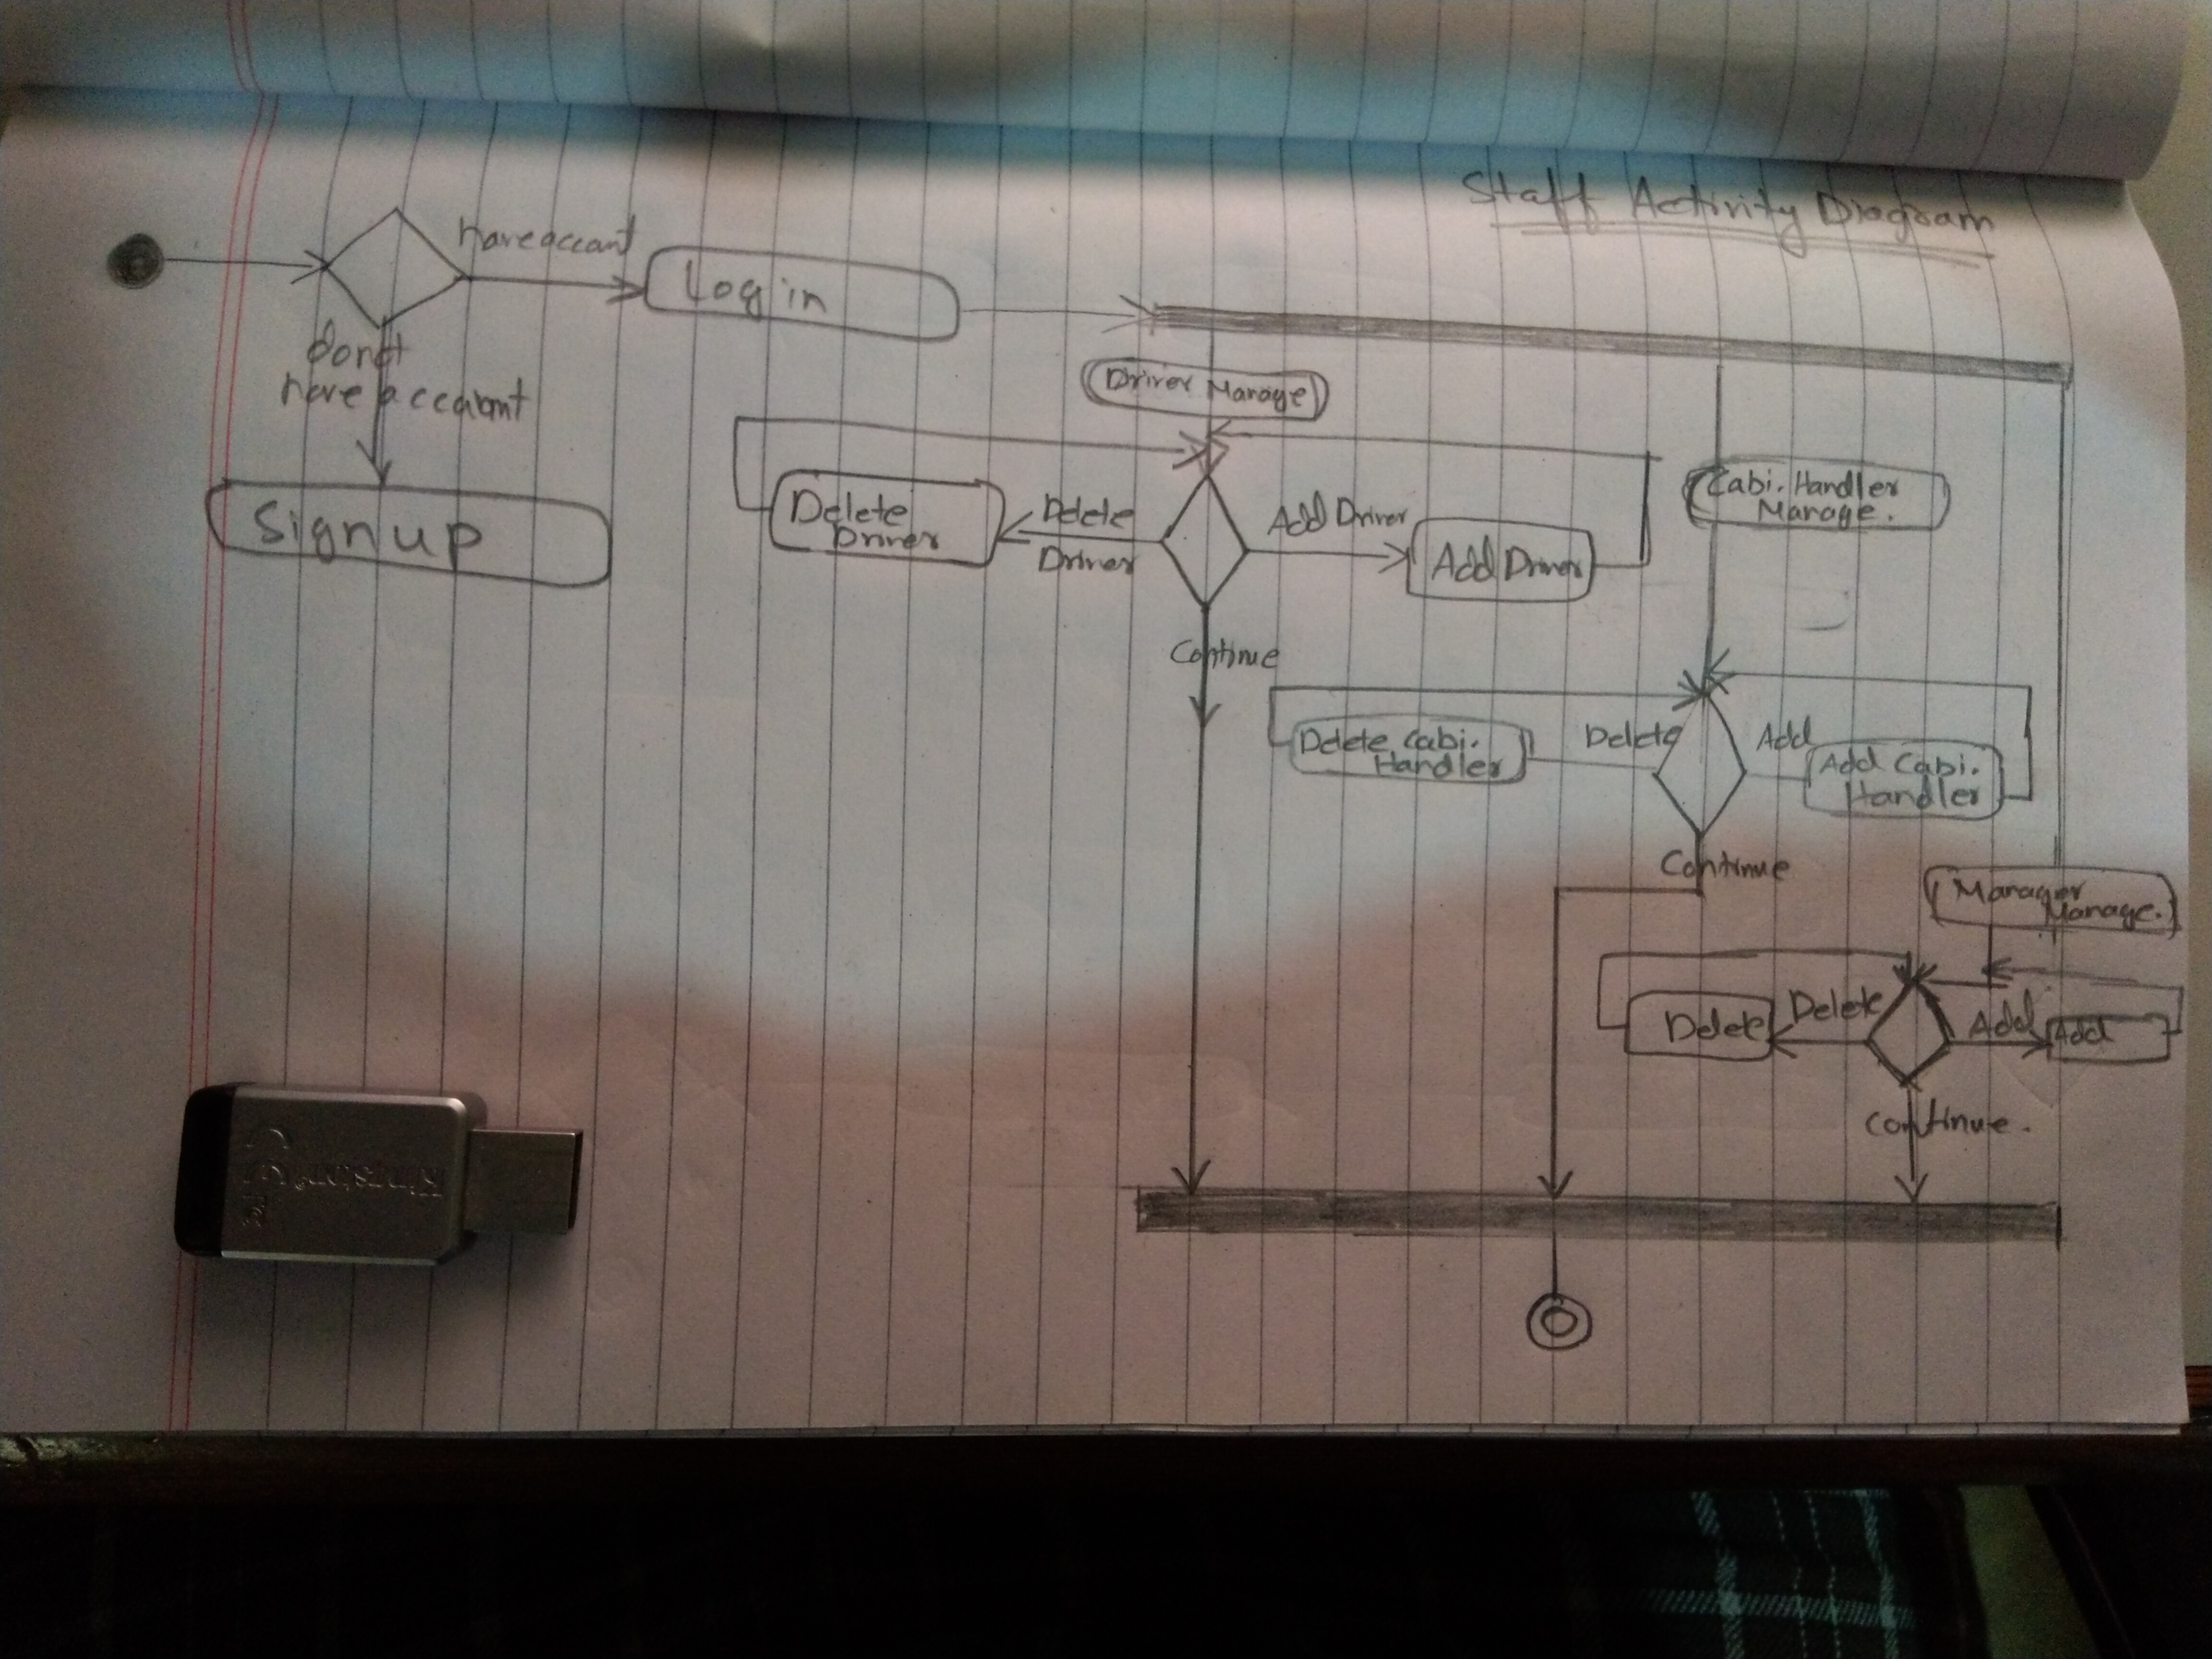 Staff Activity Diagram
have accant
Log in
donot
have accabmt
Signup
Driver Manage
Delete
Driver
Delete
Driver
Add Driver
Add Driver
Continue
Cabi. Handler
Manage.
Delete Cabi.
Handler
Delete
Add
Add Cabi.
Handler
Continue
Manager
Manage.
Delete
Delete
Add
Add
continue.
Kingston